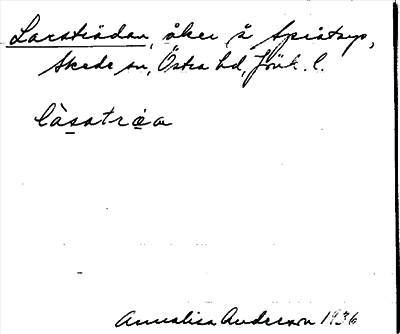 Larsträdan, åker å Spistorp,
Skede sn, Östra hd, Jönk. l.
làsatrǝ́a
Annalisa Anderson 1936